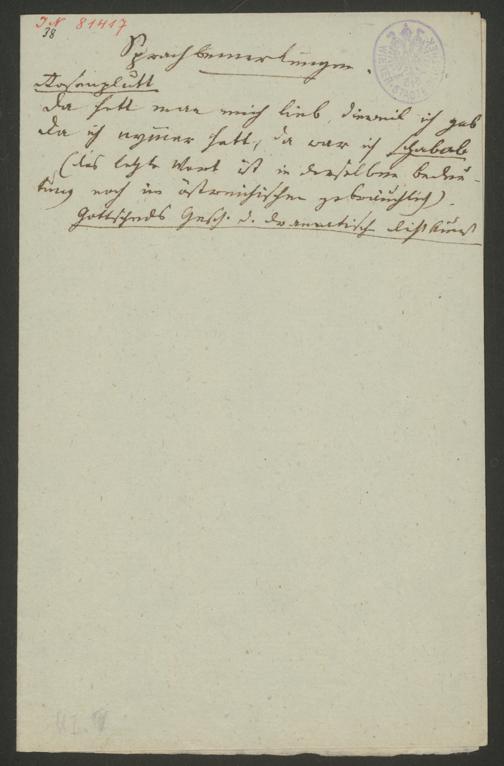 I.N. 81417
38
Sprachbemerkungen.
Rosenplutt
Da hett man mich lieb, dieweil ich gab
Da ich nymer hett, da war ich schabab
(das letzte Wort ist in derselben Bedeu-
tung noch im östreichischen gebräuchlich).
Gottscheds Gesch. d. dramatisch Dichtkunst